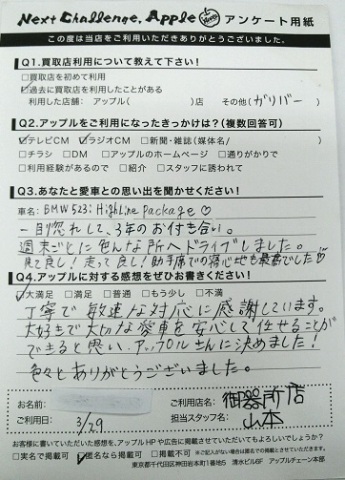 Next Challenge, Apple アンケート用紙
この度は当店をご利用いただきありがとうございました。
Q1.買取店利用について教えて下さい!
□買取店を初めて利用
☑過去に買取店を利用したことがある
利用した店舗: アップル( )店 その他(ガリバー)
Q2.アップルをご利用になったきっかけは?(複数回答可)
☑テレビCM ☑ラジオCM □新聞・雑誌(媒体名/ )
□チラシ □DM □アップルのホームページ □通りがかりで
□利用経験があるので □紹介 □スタッフに誘われて
Q3.あなたと愛車との思い出を聞かせください!
車名: BMW523i HighLine package♡
一目惚れして、3年のお付き合い。
週末ごとに色んな所へドライブしました。
見て良し!走って良し!助手席での寝心地も最高でした♡
Q4.アップルに対する感想をぜひお書きください!
☑大満足 □満足 □普通 □もう少し □不満
丁寧で敏速な対応に感謝しています。
大好きで大切な愛車を安心して任せることが
できると思い、アップルさんに決めました!
色々とありがとうございました。
お名前:
ご利用店名: 御器所店
ご利用日: 3/29
担当スタッフ名: 山本
お客様に書いていただいた感想を、アップルHPや広告に掲載させていただいてもよろしいでしょうか?
□実名で掲載可 ☑匿名なら掲載可 □掲載不可
東京都千代田区神田岩本町1番地5 清水ビル6F アップルチェーン本部